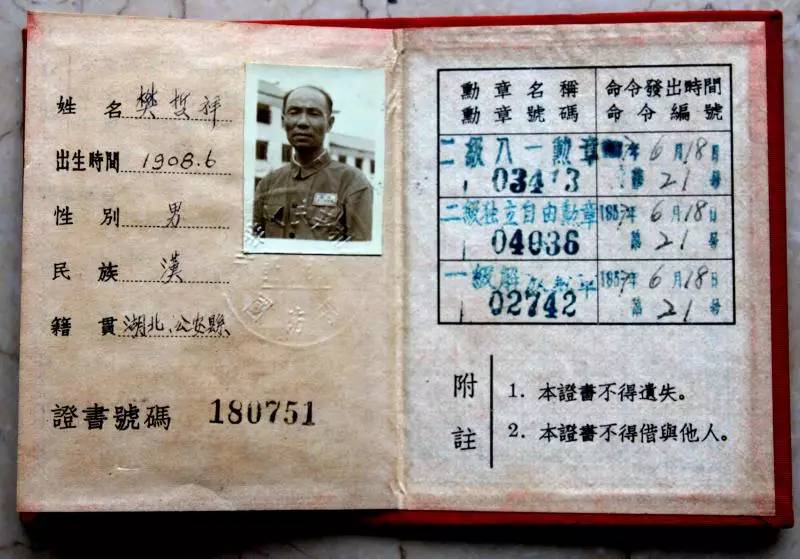 姓 名 樊哲祥
出生時間 1908.6
性 別 男
民 族 漢
籍 貫 湖北、公安縣
證書號碼 180751
國防部
勳章名稱 命令發出時間
勳章號碼 命令編號
二級八一勳章 1957年6月18日
03413 第21号
二級独立自由勳章 1957年6月18日
04036 第21号
一級解放勳章 1957年6月18日
02742 第21号
附註
1. 本證書不得遺失。
2. 本證書不得借與他人。